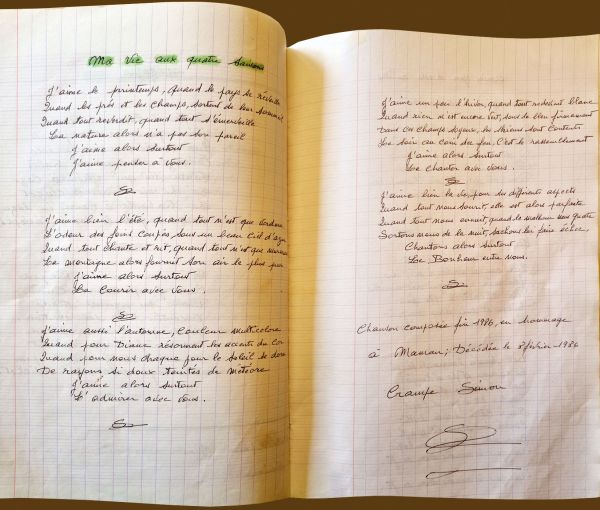 Ma vie aux quatre saisons
J'aime le printemps, quand le pays se réveille
Quand les prés et les champs, sortent de leur sommeil
Quand tout reverdit, quand tout s'émerveille
La nature alors n'a pas son pareil
J'aime alors surtout
J'aime penser à vous.
J'aime bien l'été, quand tout n'est que verdure
L'odeur des foins coupés sous un beau ciel d'azur
Quand tout chante et rit, quand tout n'est que murmure
La montagne alors fournit son air le plus pur
J'aime alors surtout
La courir avec vous.
J'aime aussi l'automne, couleur multicolore
Quand pour Diane résonnent les accents du cor
Quand pour nous chaque jour le soleil se dore
De rayons si doux, teintés de météore
J'aime alors surtout
L'admirer avec vous.
J'aime un peu l'hiver, quand tout redevient blanc
Quand rien n'est encore vert, sous le bleu firmament
Dans ces champs soyeux, les skieurs sont contents
Le soir au coin du feu, c'est le rassemblement
J'aime alors surtout
Le chanter avec vous.
J'aime bien la vie, pour ses différents aspects
Quand tout nous sourit, elle est alors parfaite
Quand tout nous ennuit, quand le malheur nous guette
Sortons nous de la nuit, sachons lui faire échec,
Chantons alors surtout
Le Bonheur entre nous.
Chanson composée fin 1986, en hommage
à Maman; Décédée le 8 février 1986
Crampe Simon